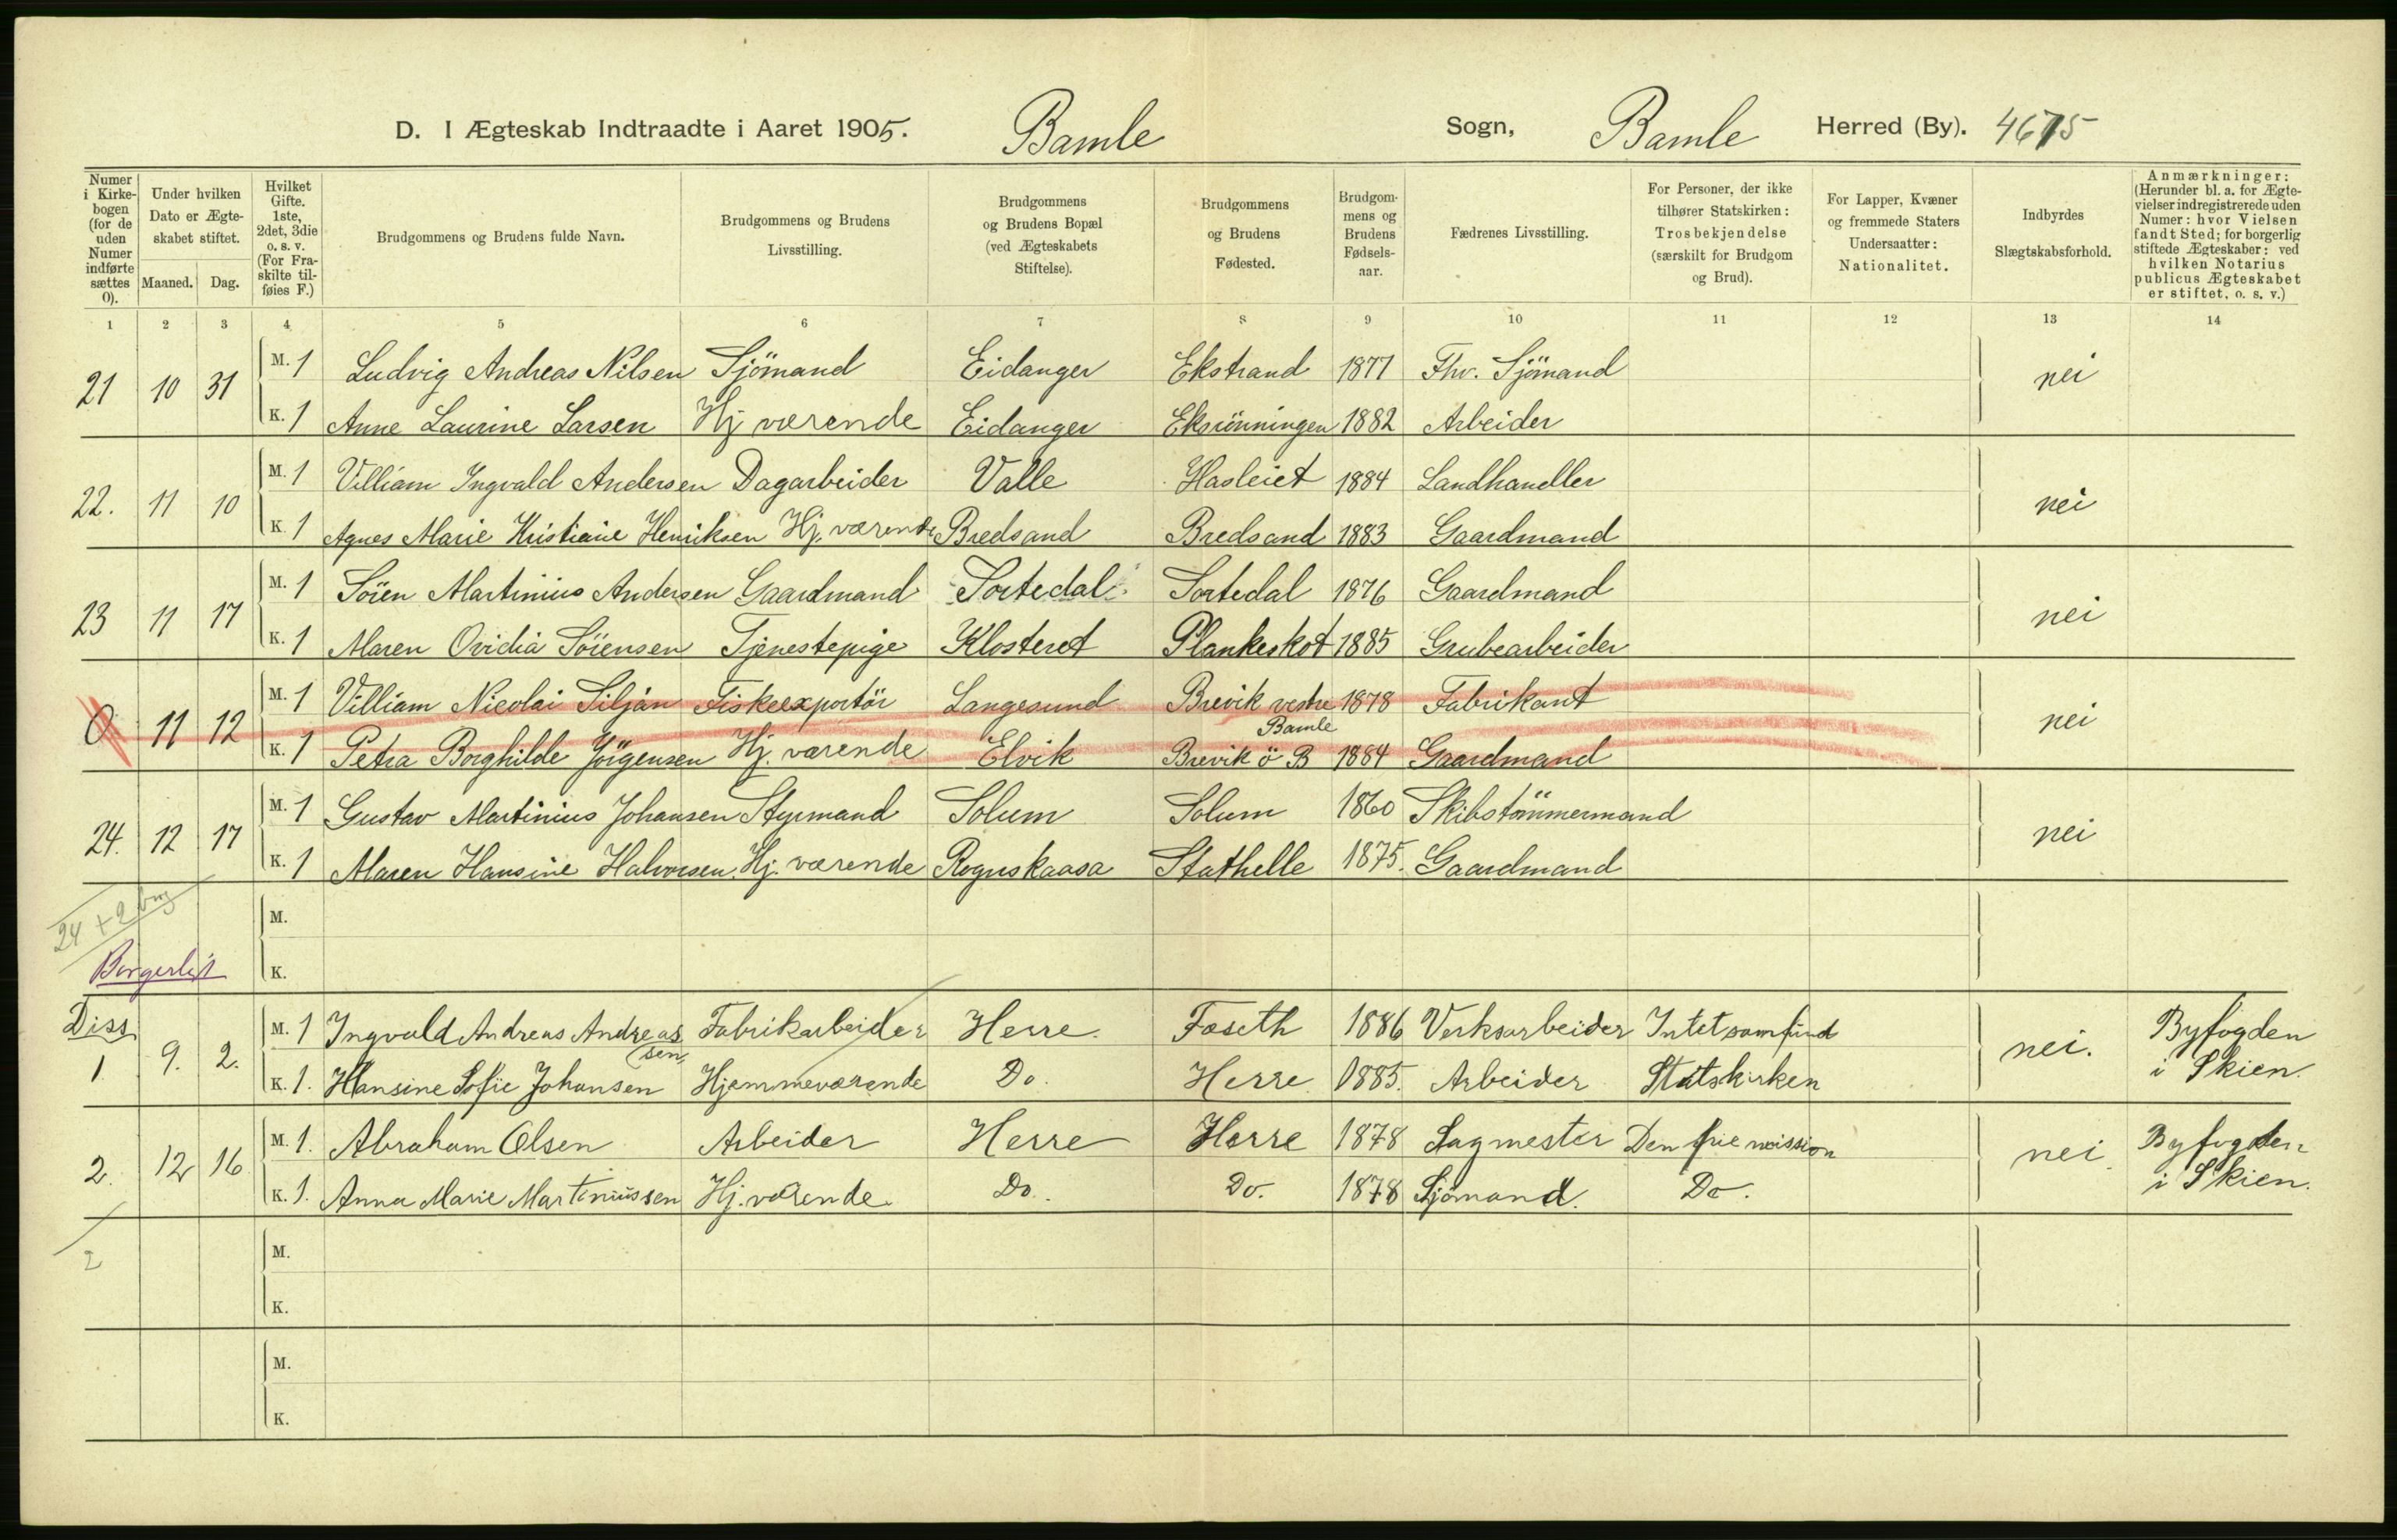 D. I Ægteskab Indtraadte i Aaret 1905. Bamle Sogn, Bamle Herred (By). 4675
Numer i Kirkebogen (for de uden Numer indførte sættes 0).
Under hvilken Dato er Ægteskabet stiftet.
Maaned. Dag.
Hvilket Gifte. 1ste, 2det, 3die o. s. v. (For Fraskilte tilføies F.)
Brudgommens og Brudens fulde Navn.
Brudgommens og Brudens Livsstilling.
Brudgommens og Brudens Bopæl (ved Ægteskabets Stiftelse).
Brudgommens og Brudens Fødested.
Brudgommens og Brudens Fødselsaar.
Fædrenes Livsstilling.
For Personer, der ikke tilhører Statskirken: Trosbekjendelse (særskilt for Brudgom og Brud).
For Lapper, Kvæner og fremmede Staters Undersaatter: Nationalitet.
Indbyrdes Slægtskabsforhold.
Anmærkninger: (Herunder bl. a. for Ægtevielser indregistrerede uden Numer: hvor Vielsen fandt Sted; for borgerlig stiftede Ægteskaber: ved hvilken Notarius publicus Ægteskabet er stiftet, o. s. v.)
1 2 3 4 5 6 7 8 9 10 11 12 13 14
M. 1 Ludvig Andreas Nilsen Sjömand Eidanger Ekstrand 1877 Fhv. Sjömand
21 10 31 nei
K. 1 Anne Laurine Larsen Hj værende Eidanger Eksrönningen 1882 Arbeider
M. 1 Villiam Ingvald Andersen Dagarbeider Valle Hasleiet 1884 Landhandler
22. 11 10 nei
K. 1 Agnes Marie Kristiane Henriksen Hj. værende Bredsand Bredsand 1883 Gaardmand
M. 1 Sören Martinius Andersen Gaardmand Sortedal Sortedal 1876 Gaardmand
23 11 17 nei
K. 1 Maren Ovidia Sörensen Tjenestepige Klosteret Plankeskot 1885 Grubearbeider
M. 1 Villiam Nicolai Siljan Fiskeexportör Langesund Brevik vestre 1878 Fabrikant
0 11 12 Bamle nei
K. 1 Petra Borghilde Jörgensen Hj. værende Elvik Brevik ö B 1884 Gaardmand
M. 1 Gustav Martinius Johansen Styrmand Solum Solum 1860 Skibstömmermand
24. 12 17 nei
K. 1 Maren Hansine Halvorsen Hj. værende Rognskaasa Stathelle 1875. Gaardmand
24 + 2 borg
M.
Borgerligt
K.
Diss
M. 1 Ingvald Andreas Andreas Fabrikarbeider Herre. Foseth 1886 Verksarbeider Intet samfund Byfogden
1 9. 2. sen nei.
K. 1. Hansine Sofie Johansen Hjemmeværende Do. Herre 1885. Arbeider Statskirken i Skien.
M. 1. Abraham Olsen Arbeider Herre Herre 1878 Sagmester Den frie mission Byfogden
2. 12 16 nei
K. 1. Anna Marie Martiniussen Hj. værende. Do. Do. 1878 Sjömand. Do. i Skien.
2
M.
K.
M.
K.